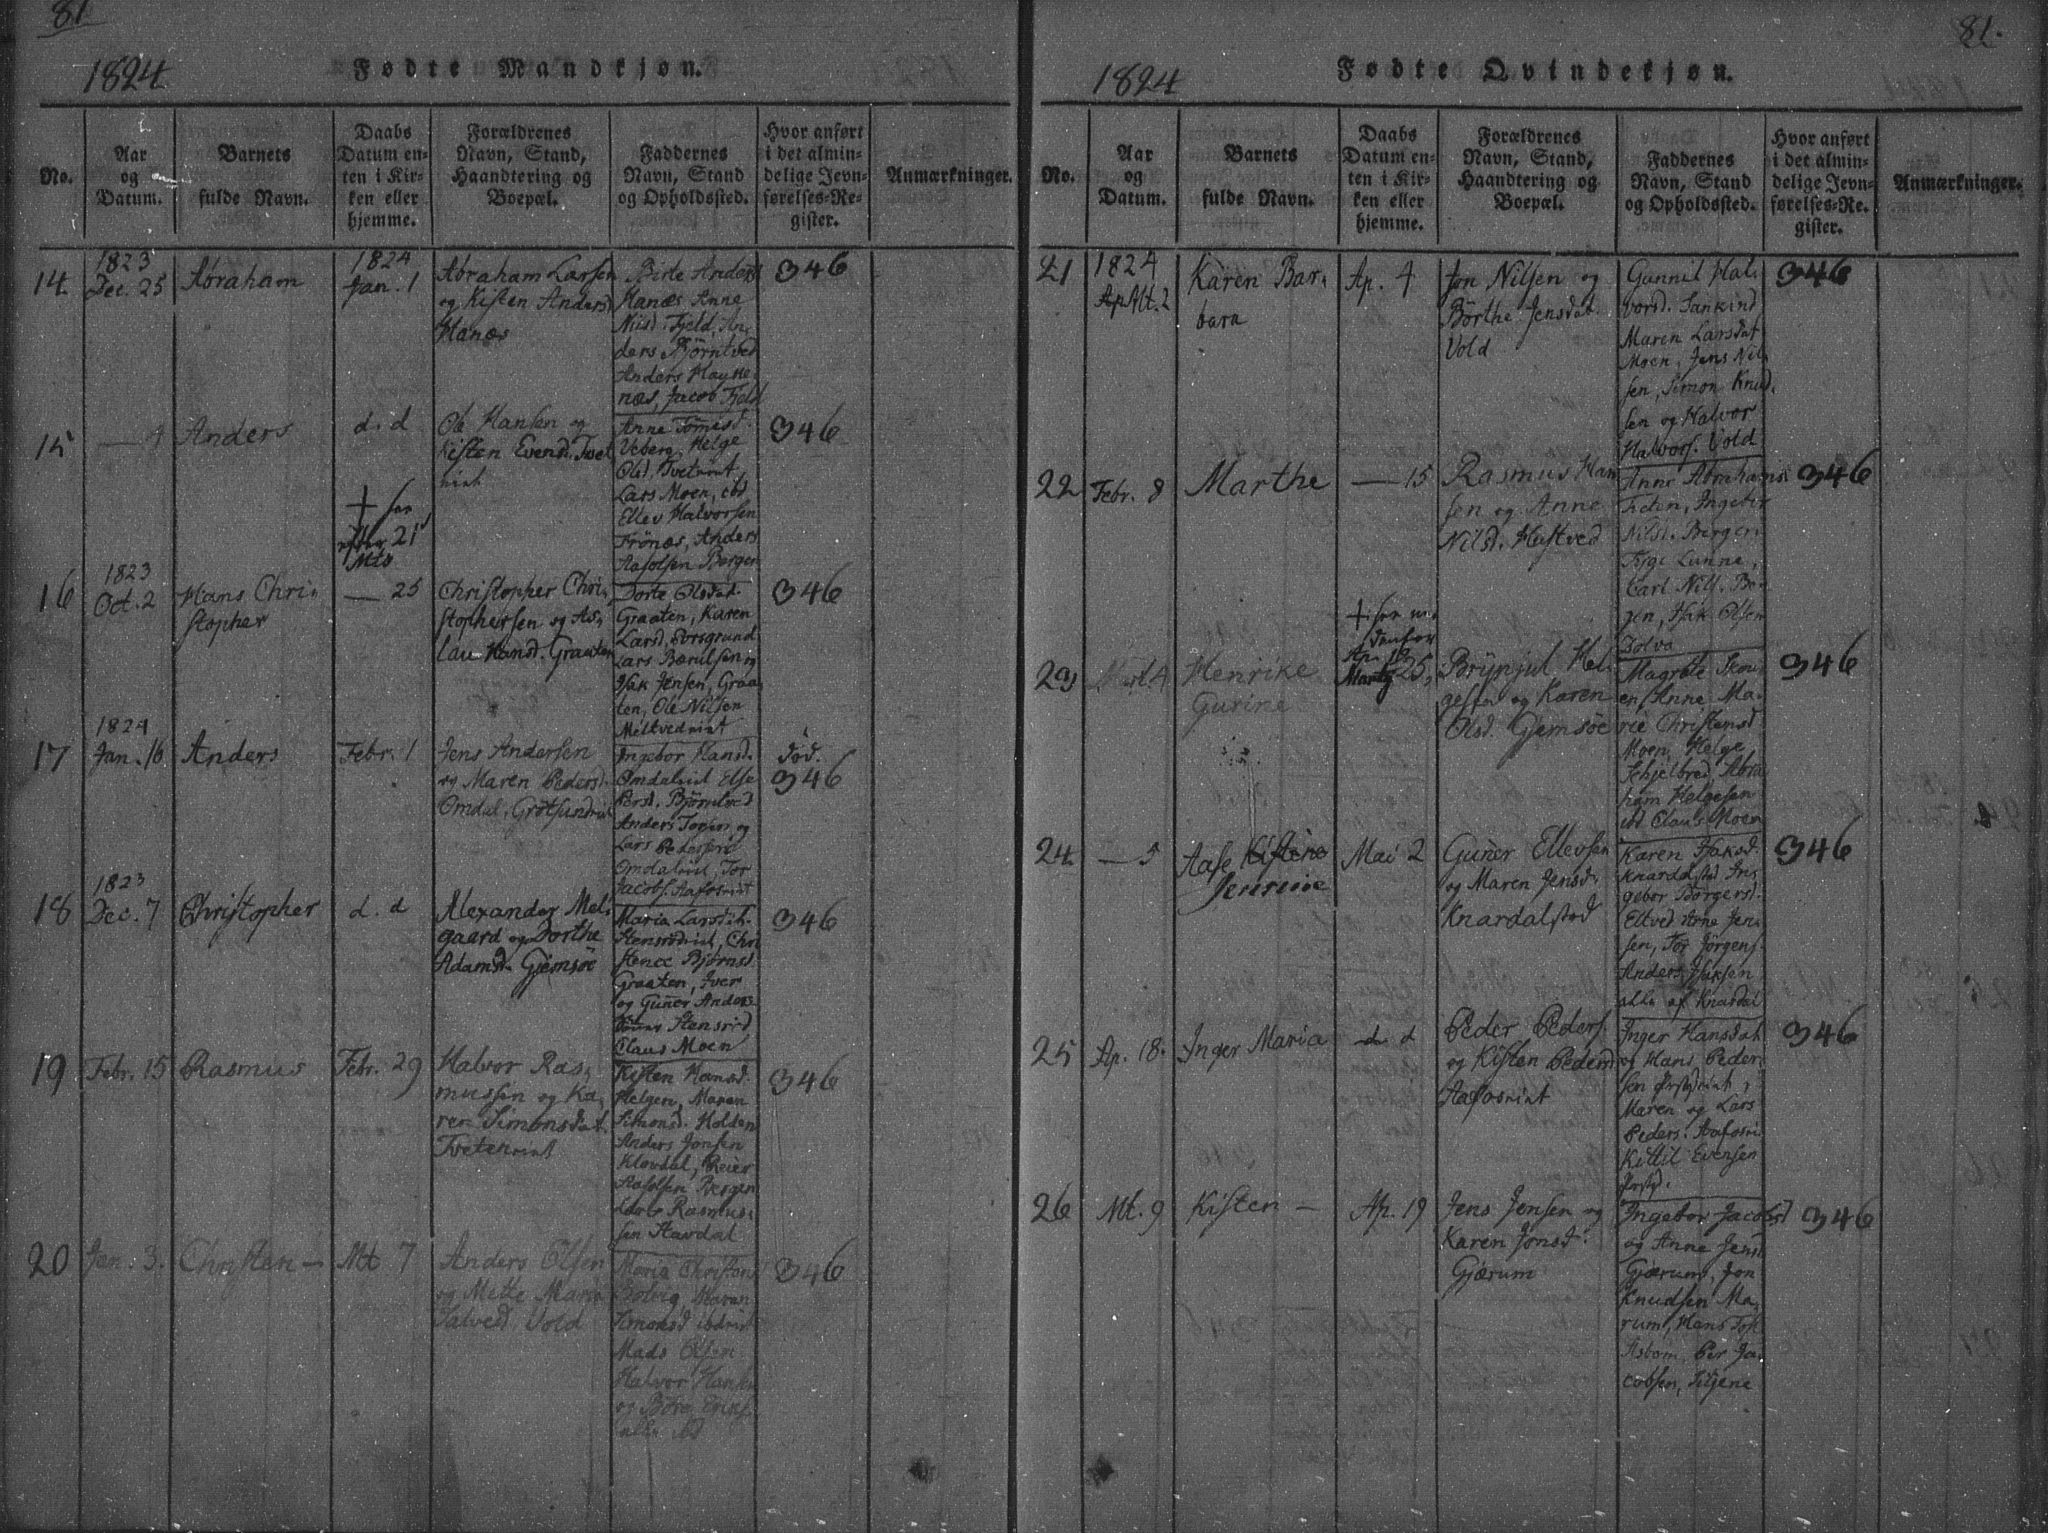 81
1824 Fødte Mandkjøn.
No.
Aar
og
Datum.
Barnets
fulde Navn.
Daabs
Datum en-
ten i Kir-
ken eller
hjemme.
Forældrenes
Navn, Stand,
Haandtering og
Boepæl.
Faddernes
Navn, Stand
og Opholdssted.
Hvor anført
i det almin-
delige Jevn-
førelses-Re-
gister.
Anmærkninger.
14.
1823
Dec. 25
Abraham
1824
Jan. 1
Abraham Larsen
og Kisten Andersd
Hanæs
Birte Anders
Hanæs Anne
Nilsd. Fjeld, An-
ders Björntved
Anders
næs, Jacob Fjeld
346
15
— 4
Anders
d. d
Ole Hansen og
Kisten Evensd. Tvet
vint
Anne Tomisd.
Veberg Helge
Olsd. Tvetvint
Lars Moen, ibd
Ellev Halvorsen
Frönæs, Anders
Aasolsen Borgen
346
16
1823
Oct. 2
Hans Chri-
stopher
21
— 25
Christopher Chri-
stophersen og As-
lau Hansd. Graaten
Dorte Olsdat.
Graaten, Karen
Larsd. Porsgrund
Lars Bærulsen og
Isak Jensen, Graa-
ten, Ole Nilsen
Meltvedvint
346
17
1824
Jan. 16
Anders
Febr. 1
Jens Andersen
og Maren Pedersd.
Omdal, Grotsundvint
Ingebor Hansd.
Omdalvint Else
Persd. Björntved
Anders Torsen og
Lars Pedersen
Omdalvint, Tor
Jacobs. Aafosvint
död.
346
18
1823
Dec. 7
Christopher
d. d
Alexander Mel-
gaard og Dorthe
Adamsd. Gjemsöe
Maria Larsdat.
Stensrödvint, Chri
stence Björnsd.
Graaten, Iver
og Guner Anders
Stensrid
Claus Moen
346
19
Febr. 15
Rasmus
Febr. 29
Halvor Ras-
mussen og Ka-
ren Simonsdat.
Tvetenvint
Kisten Hansd.
Helgen, Maren
Simonsd. Holden
Anders Jonsen
Klovdal, Reier
Aasolsen Borgen
Rasmus-
sen Stavdal
346
20
Jan. 3.
Christen —
Mt 7
Anders Olsen
og Mette Marie
Vold
Maria Christens
Bolvig, Maren
Simonsd ibdvint
Mads Olsen
Halvor Hansen
og Böre
alle ibd
346
81.
1824 Fødte Qvindekjøn.
No.
Aar
og
Datum.
Barnets
fulde Navn.
Daabs
Datum en-
ten i Kir-
ken eller
hjemme.
Forældrenes
Navn, Stand,
Haandtering og
Boepæl.
Faddernes
Navn, Stand
og Opholdssted.
Hvor anført
i det almin-
delige Jevn-
førelses-Re-
gister.
Anmærkninger.
21
1824
Mt. 2
Karen Bar-
bara
Ap. 4
Jon Nilsen og
Börthe Jensdat.
Vold
Gunnil Hal-
vorsd. Sankind
Maren Larsdat
Moen, Jens Nil-
sen, Simon Knud-
sen og Halvor
Halvors. Vold
346
22
Febr. 8
Marthe
— 15
Rasmus Han
sen og Anne
Nilsd. Hustved
Anne Abrahamsd
Feten, Ingebor
Nilsd. Borgen
Lunne,
Carl Nils. Bo-
gen, Isak Olsen
Tolva
346
23
Mart. 4
Henrike
Gurine
25
Brynjul Hel-
gesen og Karen
Olsd. Gjemsöe
Magrete Skou-
en, Anne Ma-
rie Christensd
Moen, Helge
Skjelbred, Abra
ham Helgesen
ibd Claus Moen
346
24.
— 5
Aase Kistene
Jensine
Mai 2
Guner Ellevsen
og Maren Jensd.
Knardalstad
Karen Isaksd.
Knardalstad In-
gebor Borgersd.
Eltved Arne Jen-
sen, Tor Jörgens.
Anders Isaksen
alle af Knardal
346
25
Ap. 18.
Inger Maria
d d
Peder Peders.
og Kisten Pedersd
Aafosvint
Inger Hansdat
og Hans Peder-
sen
Maren og Lars
Peders. Aafosvi
Kittil Evensen
346
26
Mt. 9
Kisten —
Ap. 19
Jens Jensen og
Karen Jonsd.
Gjærum
Ingebor Jacobsd
og Anne Jens
Gjærum, Jon
Knudsen Ma-
rum, Hans
Asbom, Per Ja-
cobsen, Tiljene
346